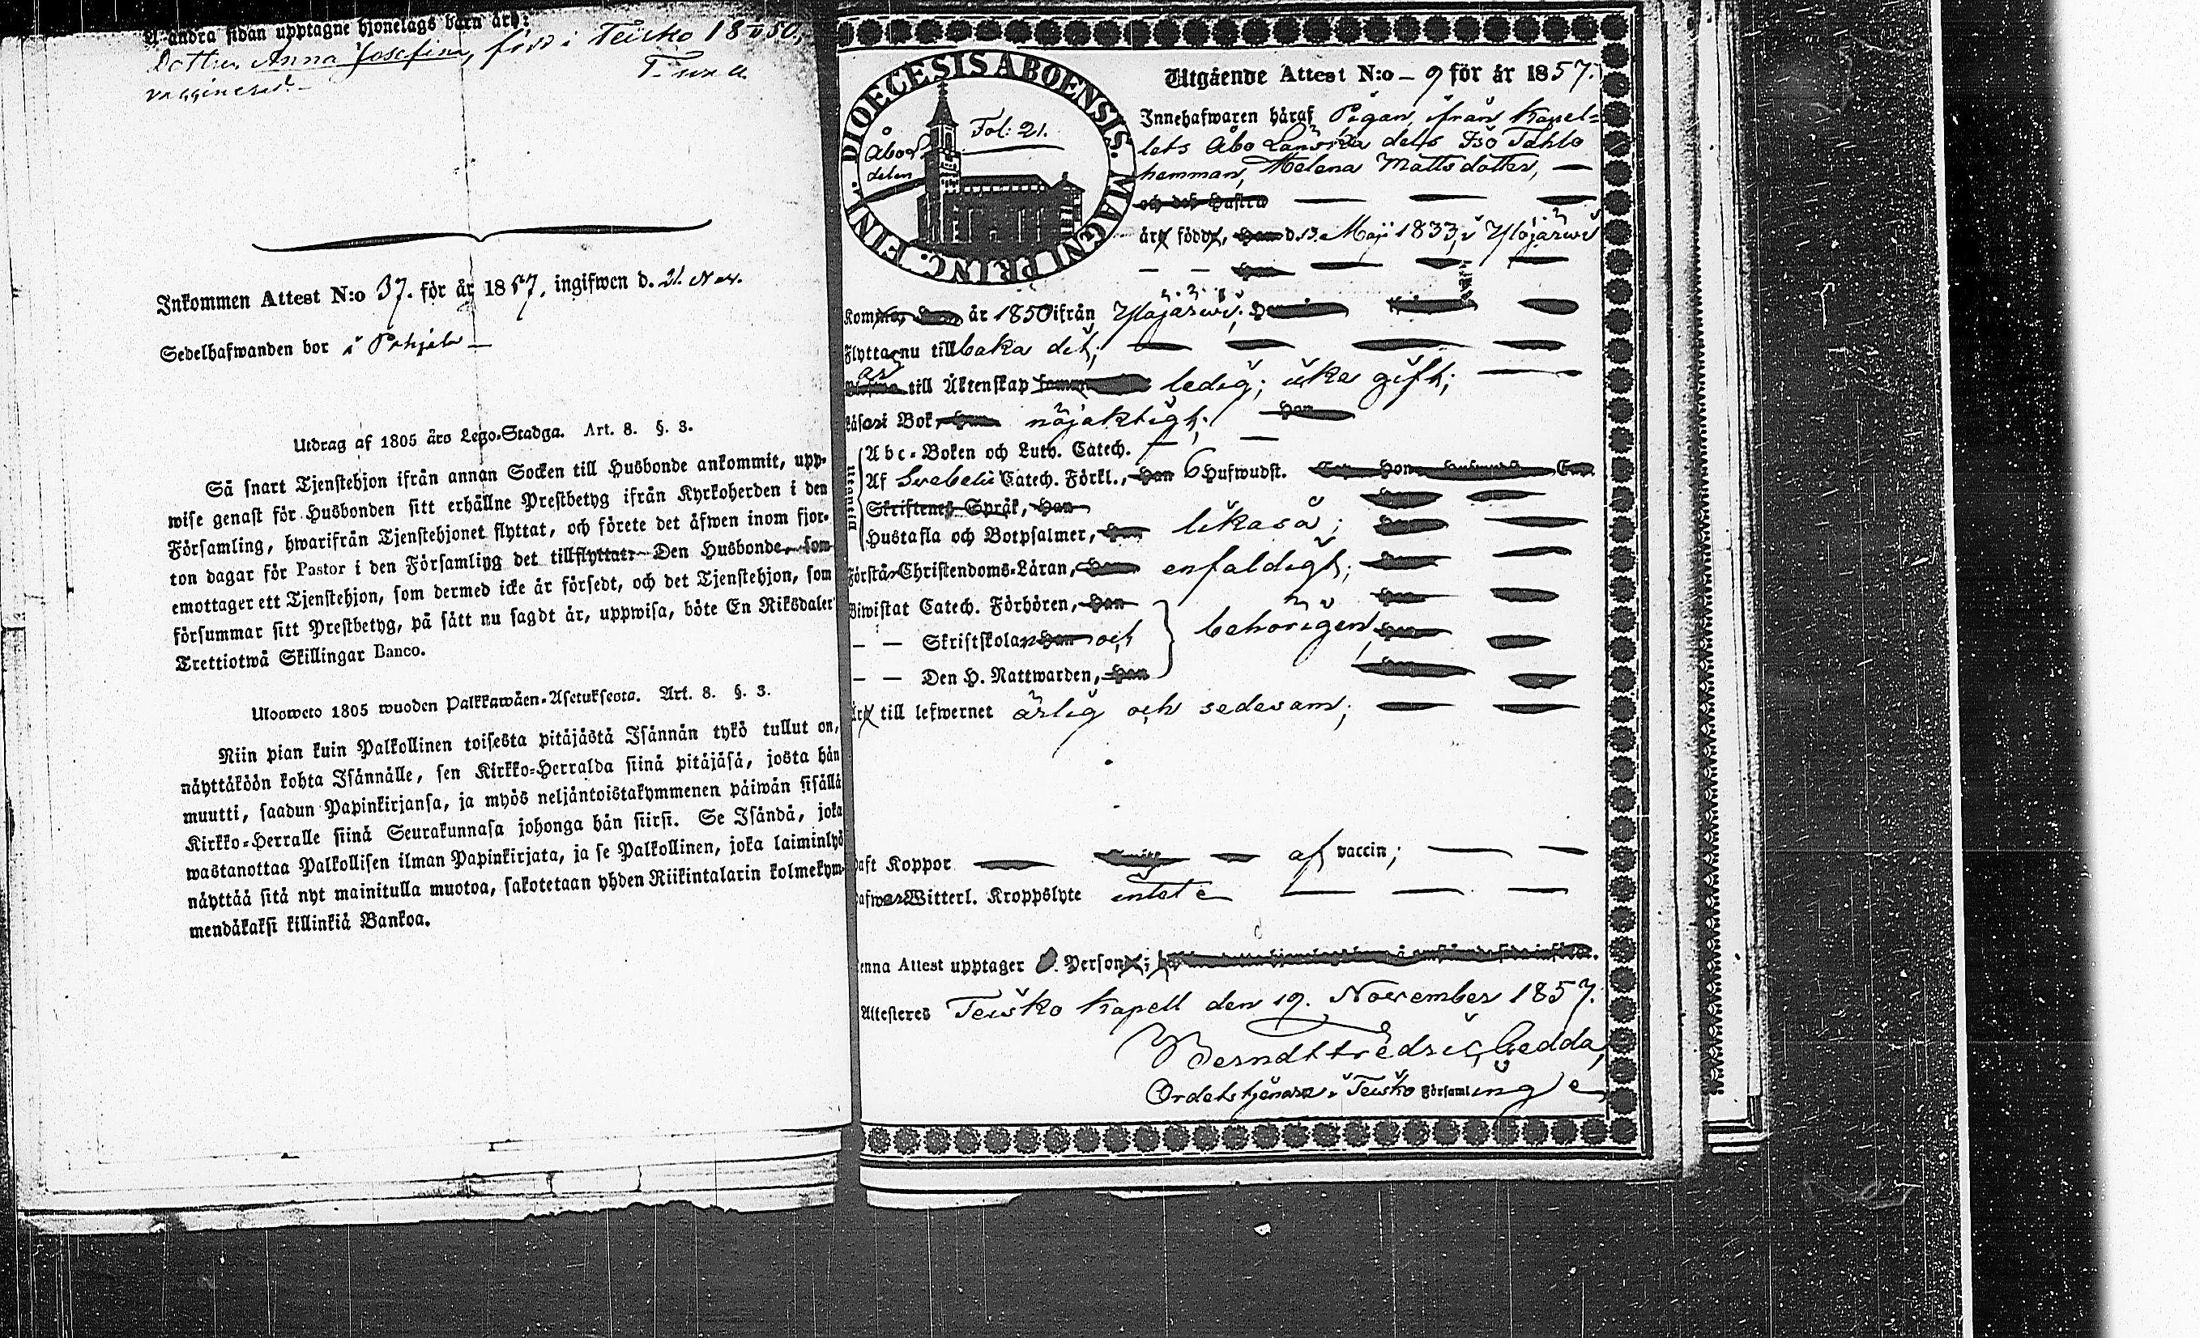 Å andra sidan upptagne hjonelags barn äro:
Dottren Anna Josefina, född i Teisko 18 50,
vaccinerad.
Inkommen Attest N:o 37. för år 1857, ingifwen d. 21 Nov.
Sedelhafwanden bor i Pohjala
Utdrag af 1805 års Lego-Stadga. Art. 8. §. 3.
Så snart Tjenstehjon ifrån annan Socken till Husbonde ankommit, upp-
wise genast för Husbonden sitt erhållne Prestbetyg ifrån Kyrkoherden i den
Församling, hwarifrån Tjenstehjonet flyttat, och förete det äfwen inom fjor-
ton dagar för Pastor i den Församling det tillflyttat. Den Husbonde, som
emottager ett Tjenstehjon, som dermed icke är försedt, och det Tjenstehjon, som
försummar sitt Prestbetyg, på sätt nu sagdt är, uppwisa, böte En Riksdaler
Trettiotwå Skillingar Banco.
Ulosweto 1805 wuoden Palkkawäen-Asetuksesta. Art. 8. §. 3.
Niin pian kuin Palkollinen toisesta pitäjästä Isännän tykö tullut on,
näyttäköön kohta Isännälle, sen Kirkko-Herralda siinä pitäjäsä, josta hän
muutti, saadun Papinkirjansa, ja myös neljäntoistakymmenen päiwän sisällä
Kirkko-Herralle siinä Seurakunnasa johonga hän siirsi. Se Isändä, joka
wastanottaa Palkollisen ilman Papinkirjata, ja se Palkollinen, joka laiminlyö
näyttää sitä nyt mainitulla muotoa, sakotetaan yhden Riikintalarin kolmekym-
mendäkaksi killinkiä Bankoa.
DIOECESIS ABOENSIS. MAGNI PRINC. FINL.
Åbo
delen
Fol: 21.
Utgående Attest N:o 9 för år 1857.
Innehafwaren häraf Pigan, ifrån Kapel-
lets Åbo Läns dels Iso Tahlo
hemman, Helena Mattsdotter,
och des Hustru
äro födde, Han d. 13. Maji 1833, i Ylöjärwi
Han
Kommo år 1850 ifrån Ylöjärwi;
Flyttar nu tillbaka dit;
är till Äktenskap ledig; icke gift;
Läser i Bok, Han nöjaktigt; Hon
Abc-Boken och Luth. Catech.
Utantill
Af Svebelii Catech. Förkl., Han 6 Hufwudst.
Skriftenes Språk, Han
Hustafla och Botpsalmer, Han likaså;
Förstår Christendoms-Läran, Han enfaldigt;
Biwistat Catech. Förhören, Han
— — Skriftskolan Han och behörigen;
— — Den H. Nattwarden, Han
Är till lefwernet ärlig och sedesam;
Haft Koppor af vaccin;
Hafwer Witterl. Kroppslyte intet
Denna Attest upptager Person;
Attesteres Teisko Kapell den 19. November 1857.
Berndt Fredric Gedda,
Ordets tjenare i Teisko Församling